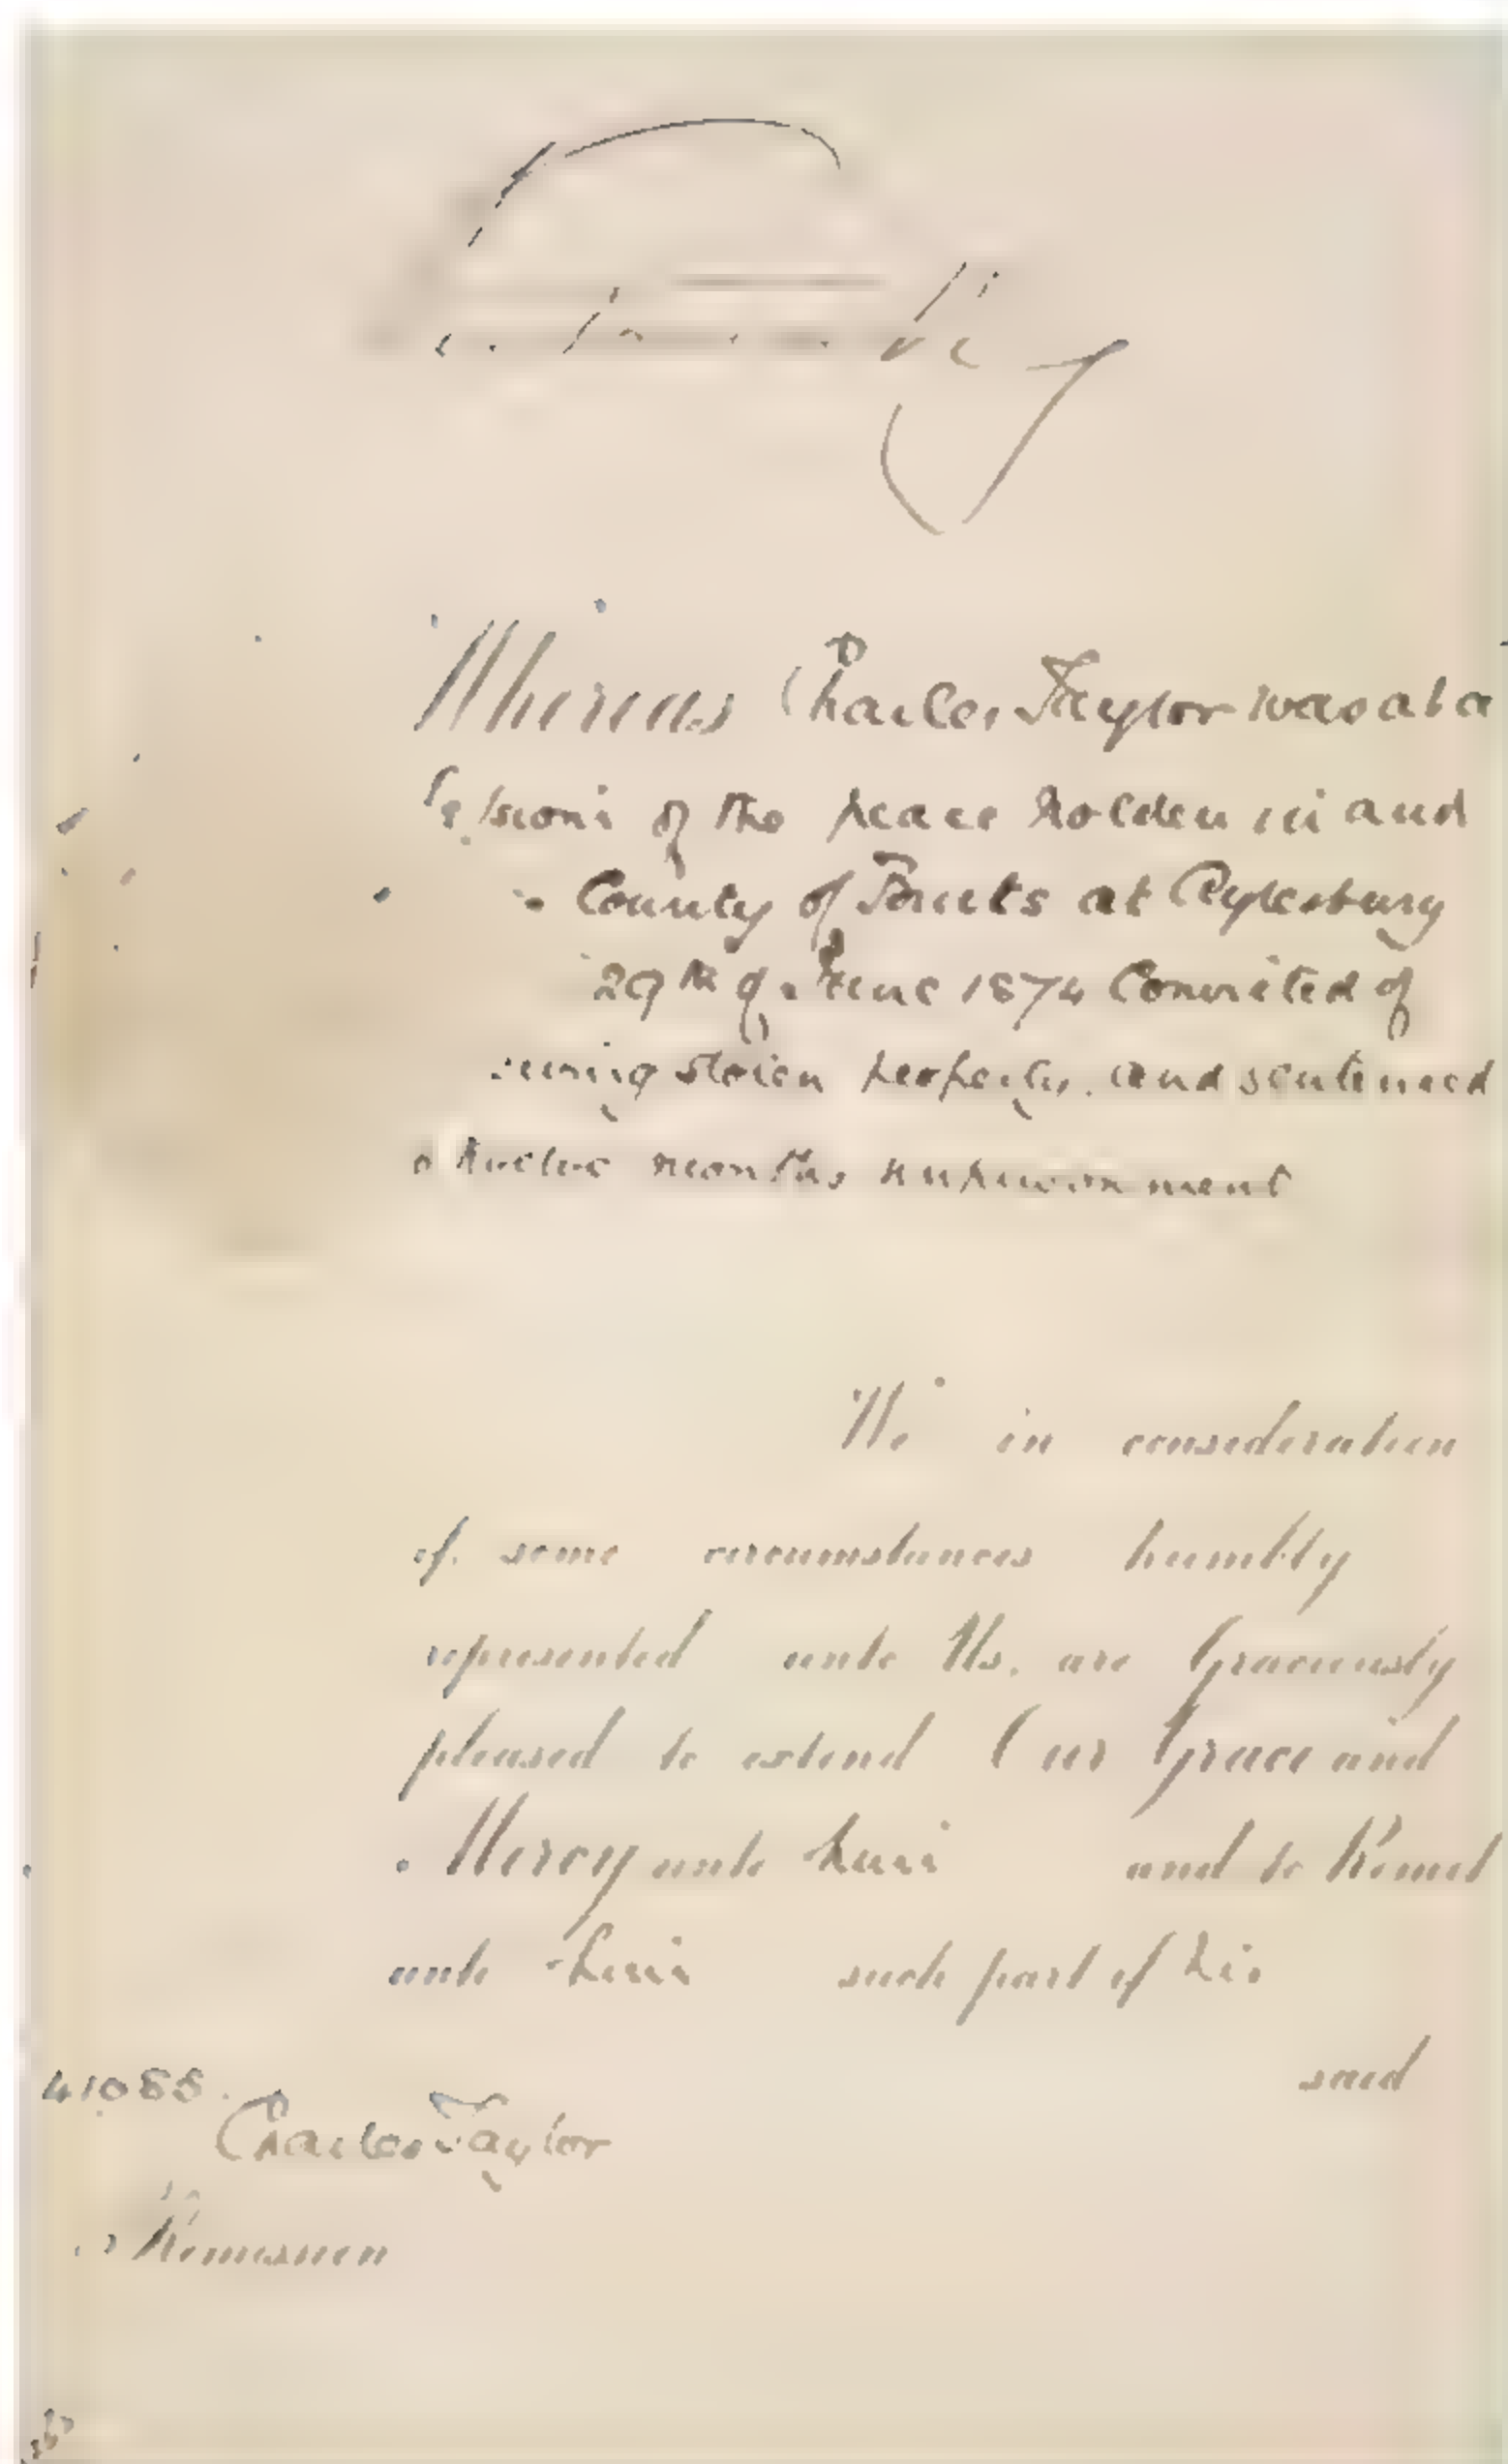 Whereas Charles Taylor was at a
Sessions of the peace holden in and
County of Bucks at Aylesbury
29th of June 1874 Convicted of
stolen property. and sentenced
to twelve months imprisonment
We in consideration
of some circumstances humbly
represented unto Us, are Graciously
pleased to extend Our Grace and
Mercy unto him and to Remit
unto him such part of his
said
41088.
Charles Taylor
Remission